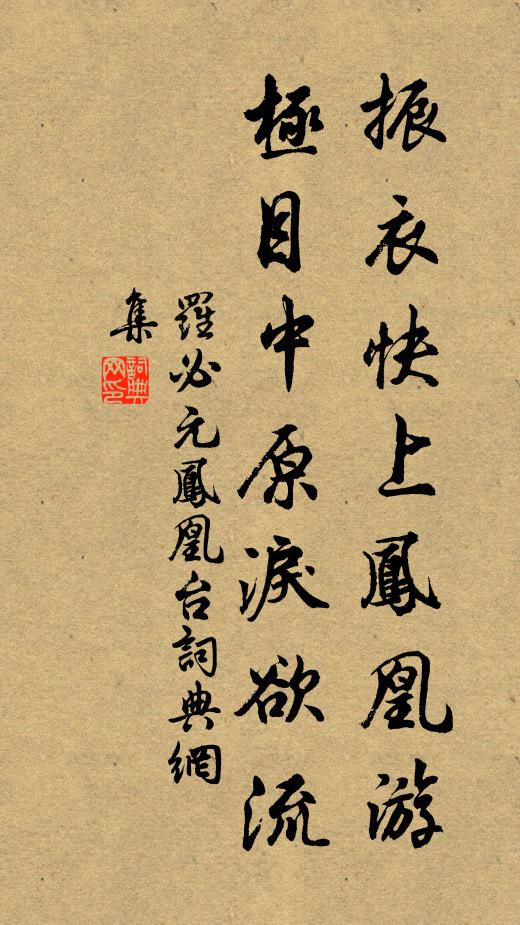 振衣快上鳳凰游
極目中原淚欲流
羅必元鳳凰台詞典網
集
詞典網印